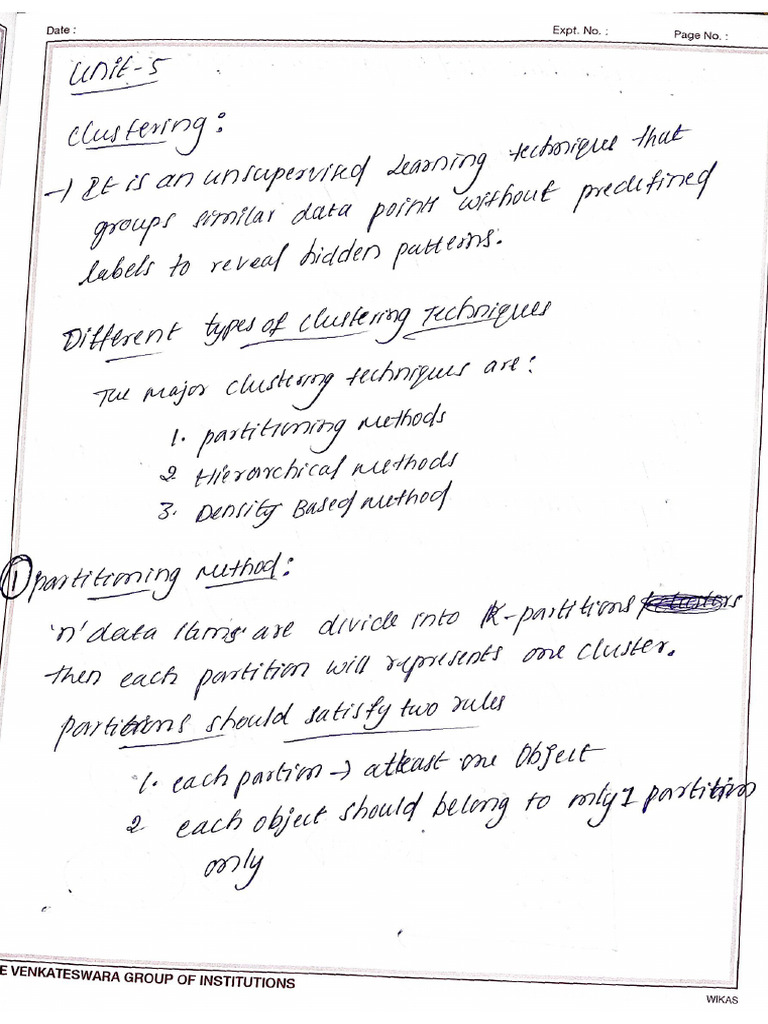 Date :
Expt. No. :
Page No. :
Unit-5
Clustering:
→ It is an unsupervised Learning technique that
groups similar data points without predefined
labels to reveal hidden patterns.
Different types of clustering Techniques
The major clustering techniques are:
1. partitioning Methods
2 Hierarchical methods
3. Density Based method
① partitioning Method:
'n' data items are divide into K-partitions
then each partition will represents one cluster.
partitions should satisfy two rules
1. each partion → atleast one Object
2 each object should belong to only 1 partition
only
E VENKATESWARA GROUP OF INSTITUTIONS
WIKAS